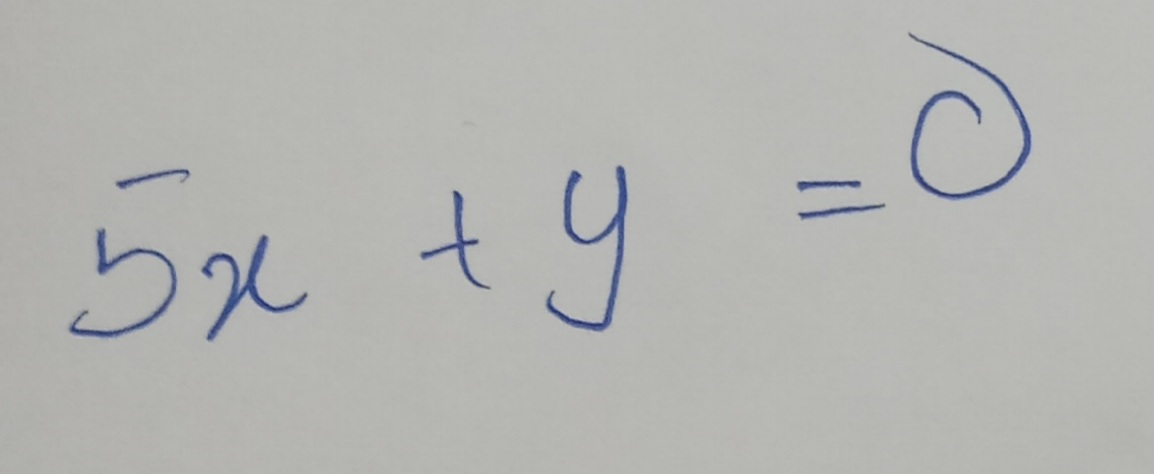 5x + y = 0